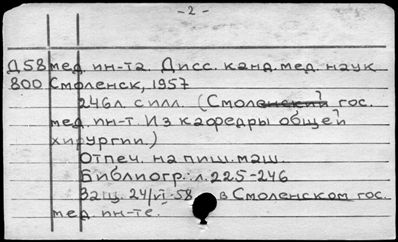 - 2 -
Д58 мед. ин-та. Дисс. канд. мед. наук
800 Смоленск, 1957
246л. с илл. (Смоленский гос.
мед. ин-т. Из кафедры общей
хирургии.)
Отпеч. на пиш. маш.
Библиогр.: л. 225-246
Защ. 24/VI-58 в Смоленском гос.
мед. ин-те.